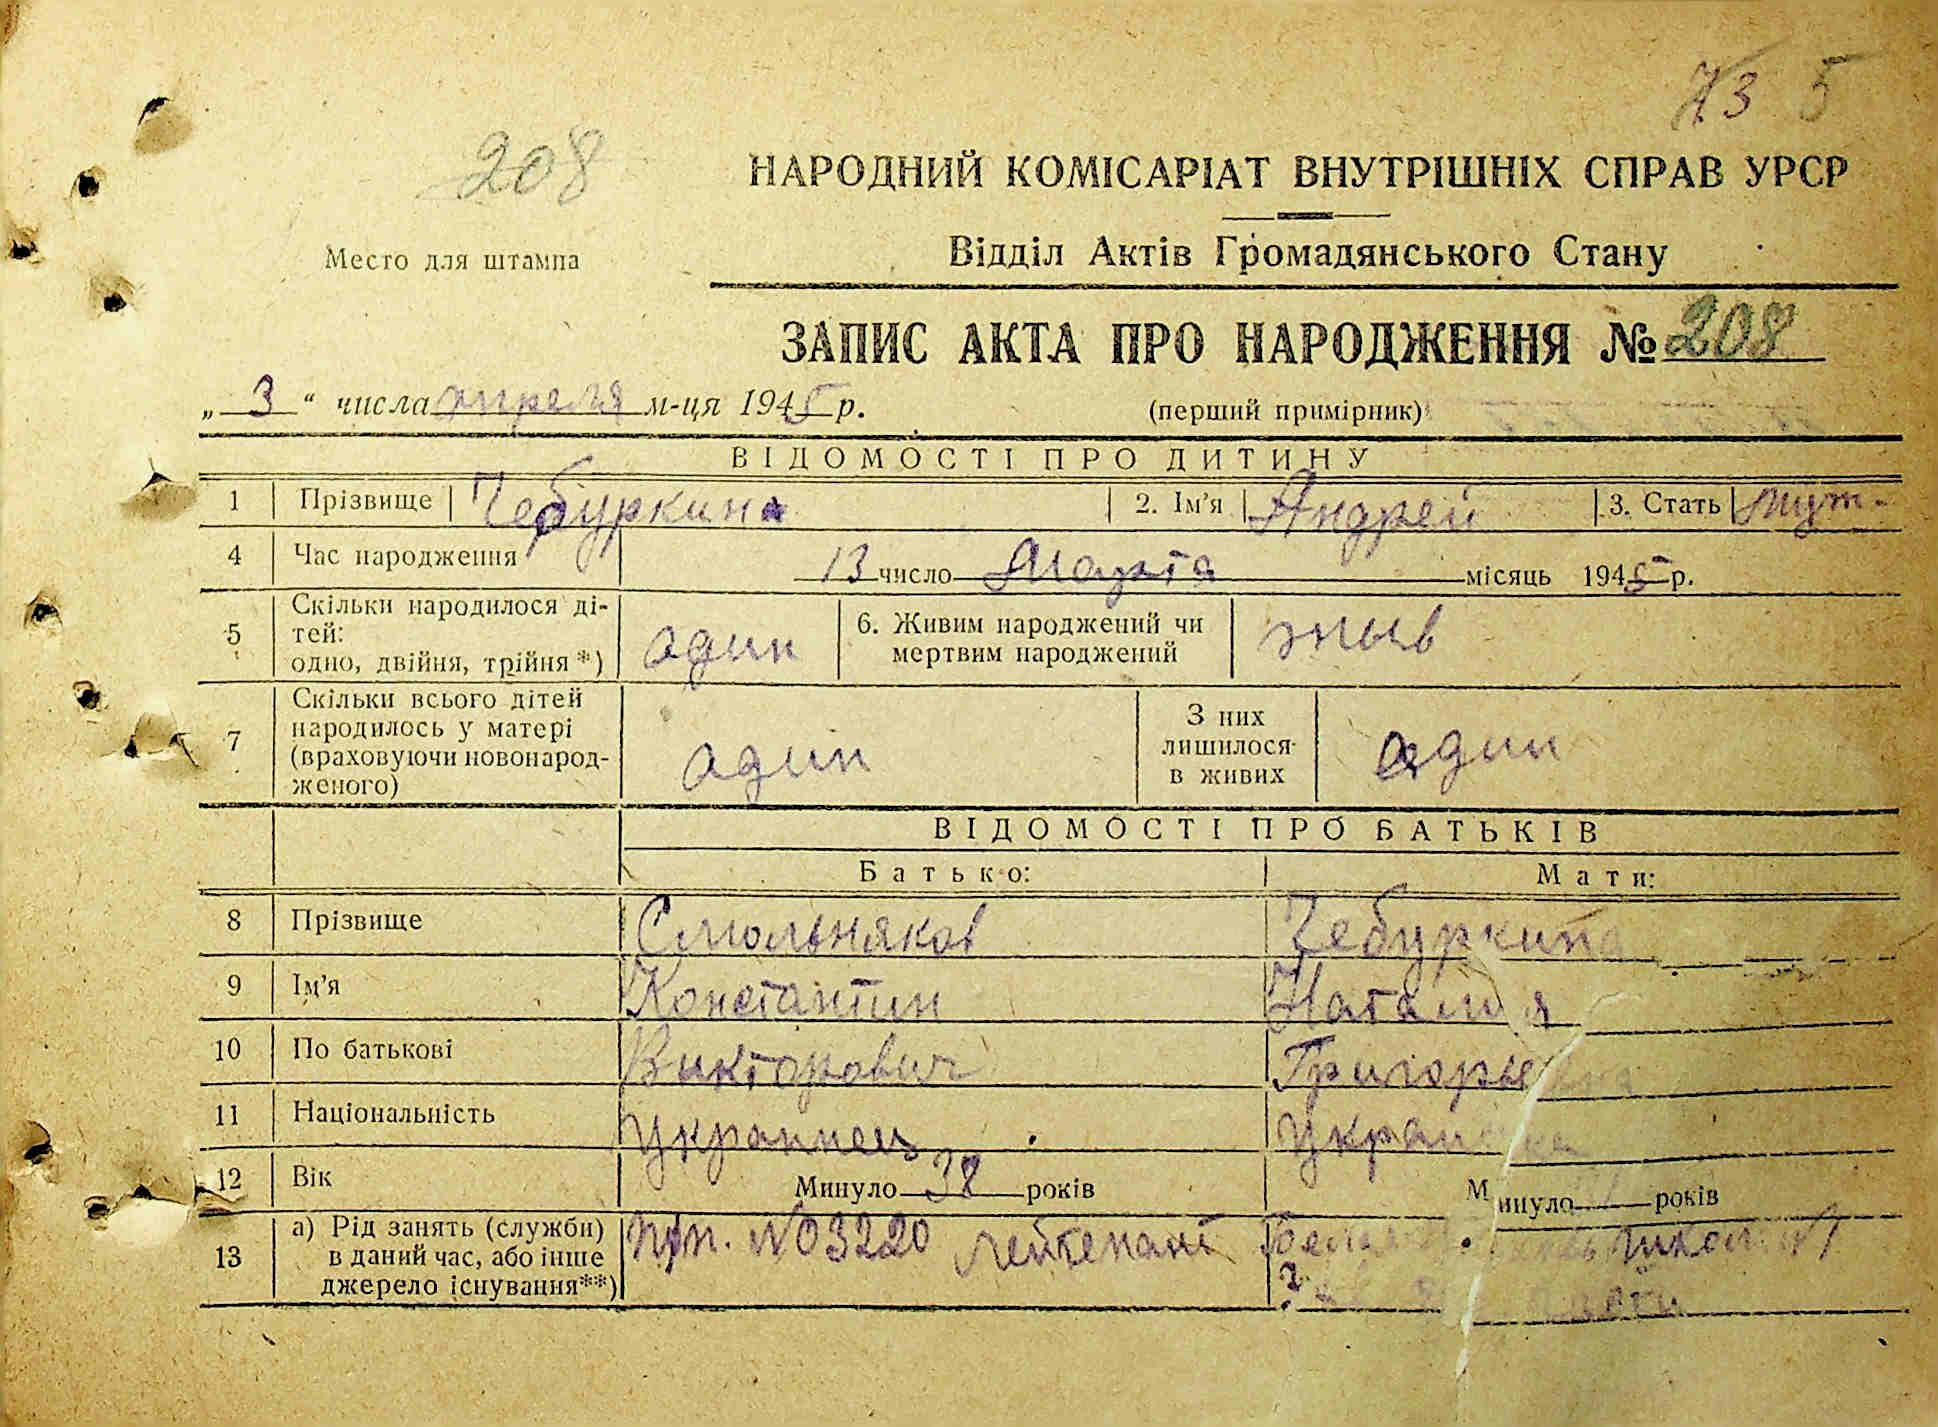 73 5
208
НАРОДНИЙ КОМІСАРІАТ ВНУТРІШНІХ СПРАВ УРСР
Відділ Актів Громадянського Стану
Место для штампа
ЗАПИС АКТА ПРО НАРОДЖЕННЯ № 208
„ 3 “ числа апреля м-ця 1945 р. (перший примірник)
ВІДОМОСТІ ПРО ДИТИНУ
1 Прізвище Чебуркина 2. Ім'я Андрей 3. Стать муж.
4 Час народження 13 число Марта місяць 1945 р.
5 Скільки народилося дітей: одно, двійня, трійня *) один 6. Живим народжений чи мертвим народжений жыв
7 Скільки всього дітей народилось у матері (враховуючи новонародженого) один З них лишилося в живих один
ВІДОМОСТІ ПРО БАТЬКІВ
Батько: Мати:
8 Прізвище Смольняков Чебуркина
9 Ім'я Константин Наталия
10 По батькові Викторович Григорьевна
11 Національність украинец украинка
12 Вік Минуло 38 років Минуло років
13 а) Рід занять (служби) в даний час, або інше джерело існування**) п/п. №03220 лейтенант школ